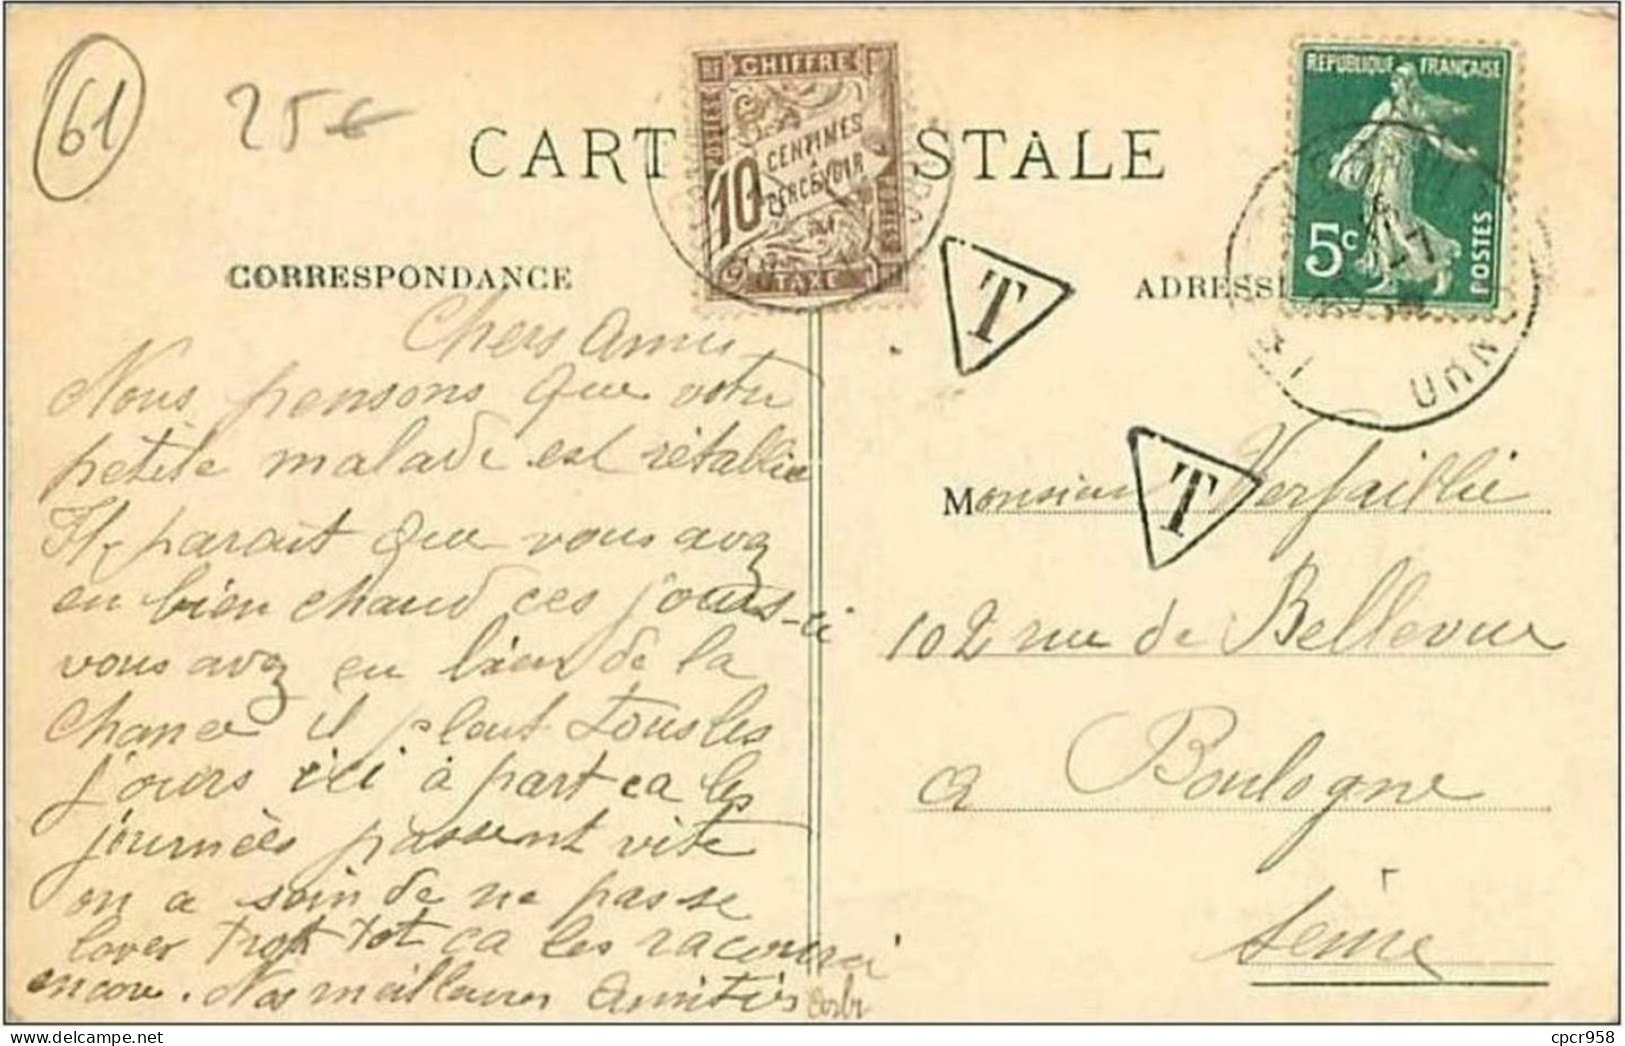 61
25€
CARTE POSTALE
CHIFFRE
POSTES
10 CENTIMES
A
PERCEVOIR
TAXE
REPUBLIQUE FRANÇAISE
5c
POSTES
T
T
CORRESPONDANCE
ADRESSE
Chers Amis
Nous pensons que votre
petite malade est rétablie
Il parait que vous avez
eu bien chaud ces jours-ci
vous avez eu bien de la
chance il pleut tous les
jours ici à part ca les
journées passent vite
on a soin de ne pas se
lever trop tot ca les racourci
encore. Nos meilleures Amitiés
Monsieur Verfaillie
102 rue de Bellevue
a Boulogne
Seine
cpcr958